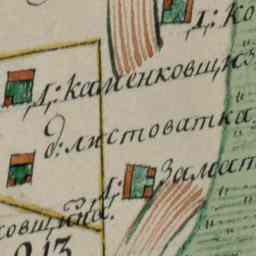 д: ко
д: каменковщиз
д: листоватка
д: Замат
овщина.
213